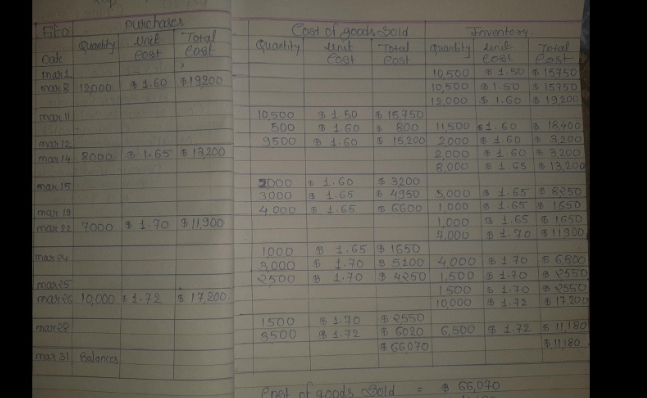 Fifo Purchases Cost of goods Sold Inventory
Date Quantity Unit Cost Total Cost Quantity Unit Cost Total Cost Quantity Unit Cost Total Cost
mar 1 10,500 $ 1.50 $ 15750
mar 8 12000 $ 1.60 $ 19,200 10,500 $ 1.50 $ 15750
12,000 $ 1.60 $ 19,200
mar 11 10,500 $ 1.50 $ 15,750
500 $ 1.60 $ 800 11,500 $ 1.60 $ 18,400
mar 12 9500 $ 1.60 $ 15,200 2,000 $ 1.60 $ 3,200
mar 14 8000 $ 1.65 $ 13,200 2,000 $ 1.60 $ 3,200
8,000 $ 1.65 $ 13,200
mar 15 2000 $ 1.60 $ 3200
3000 $ 1.65 $ 4950 5,000 $ 1.65 $ 8250
4000 $ 1.65 $ 6600 1,000 $ 1.65 $ 1650
7000 $ 1.70 $ 11,900 1,000 $ 1.65 $ 1650
7,000 $ 1.70 $ 11900
1000 $ 1.65 $ 1650
mar 24 3,000 $ 1.70 $ 5100 4,000 $ 1.70
mar 25 2500 $ 1.70 $ 4250 1,500 $ 1.70 $ 2550
10,000 $ 1.72 $ 17,200 1500 $ 1.70 $ 2550
10,000 $ 1.72 $ 17200
1500 $ 1.70 $ 2550
3500 $ 1.72 $ 6020 6,500 $ 1.72 $ 11,180
$ 66,070 $ 11,180
mar 31 Balances
Cost of goods Sold = $ 66,070